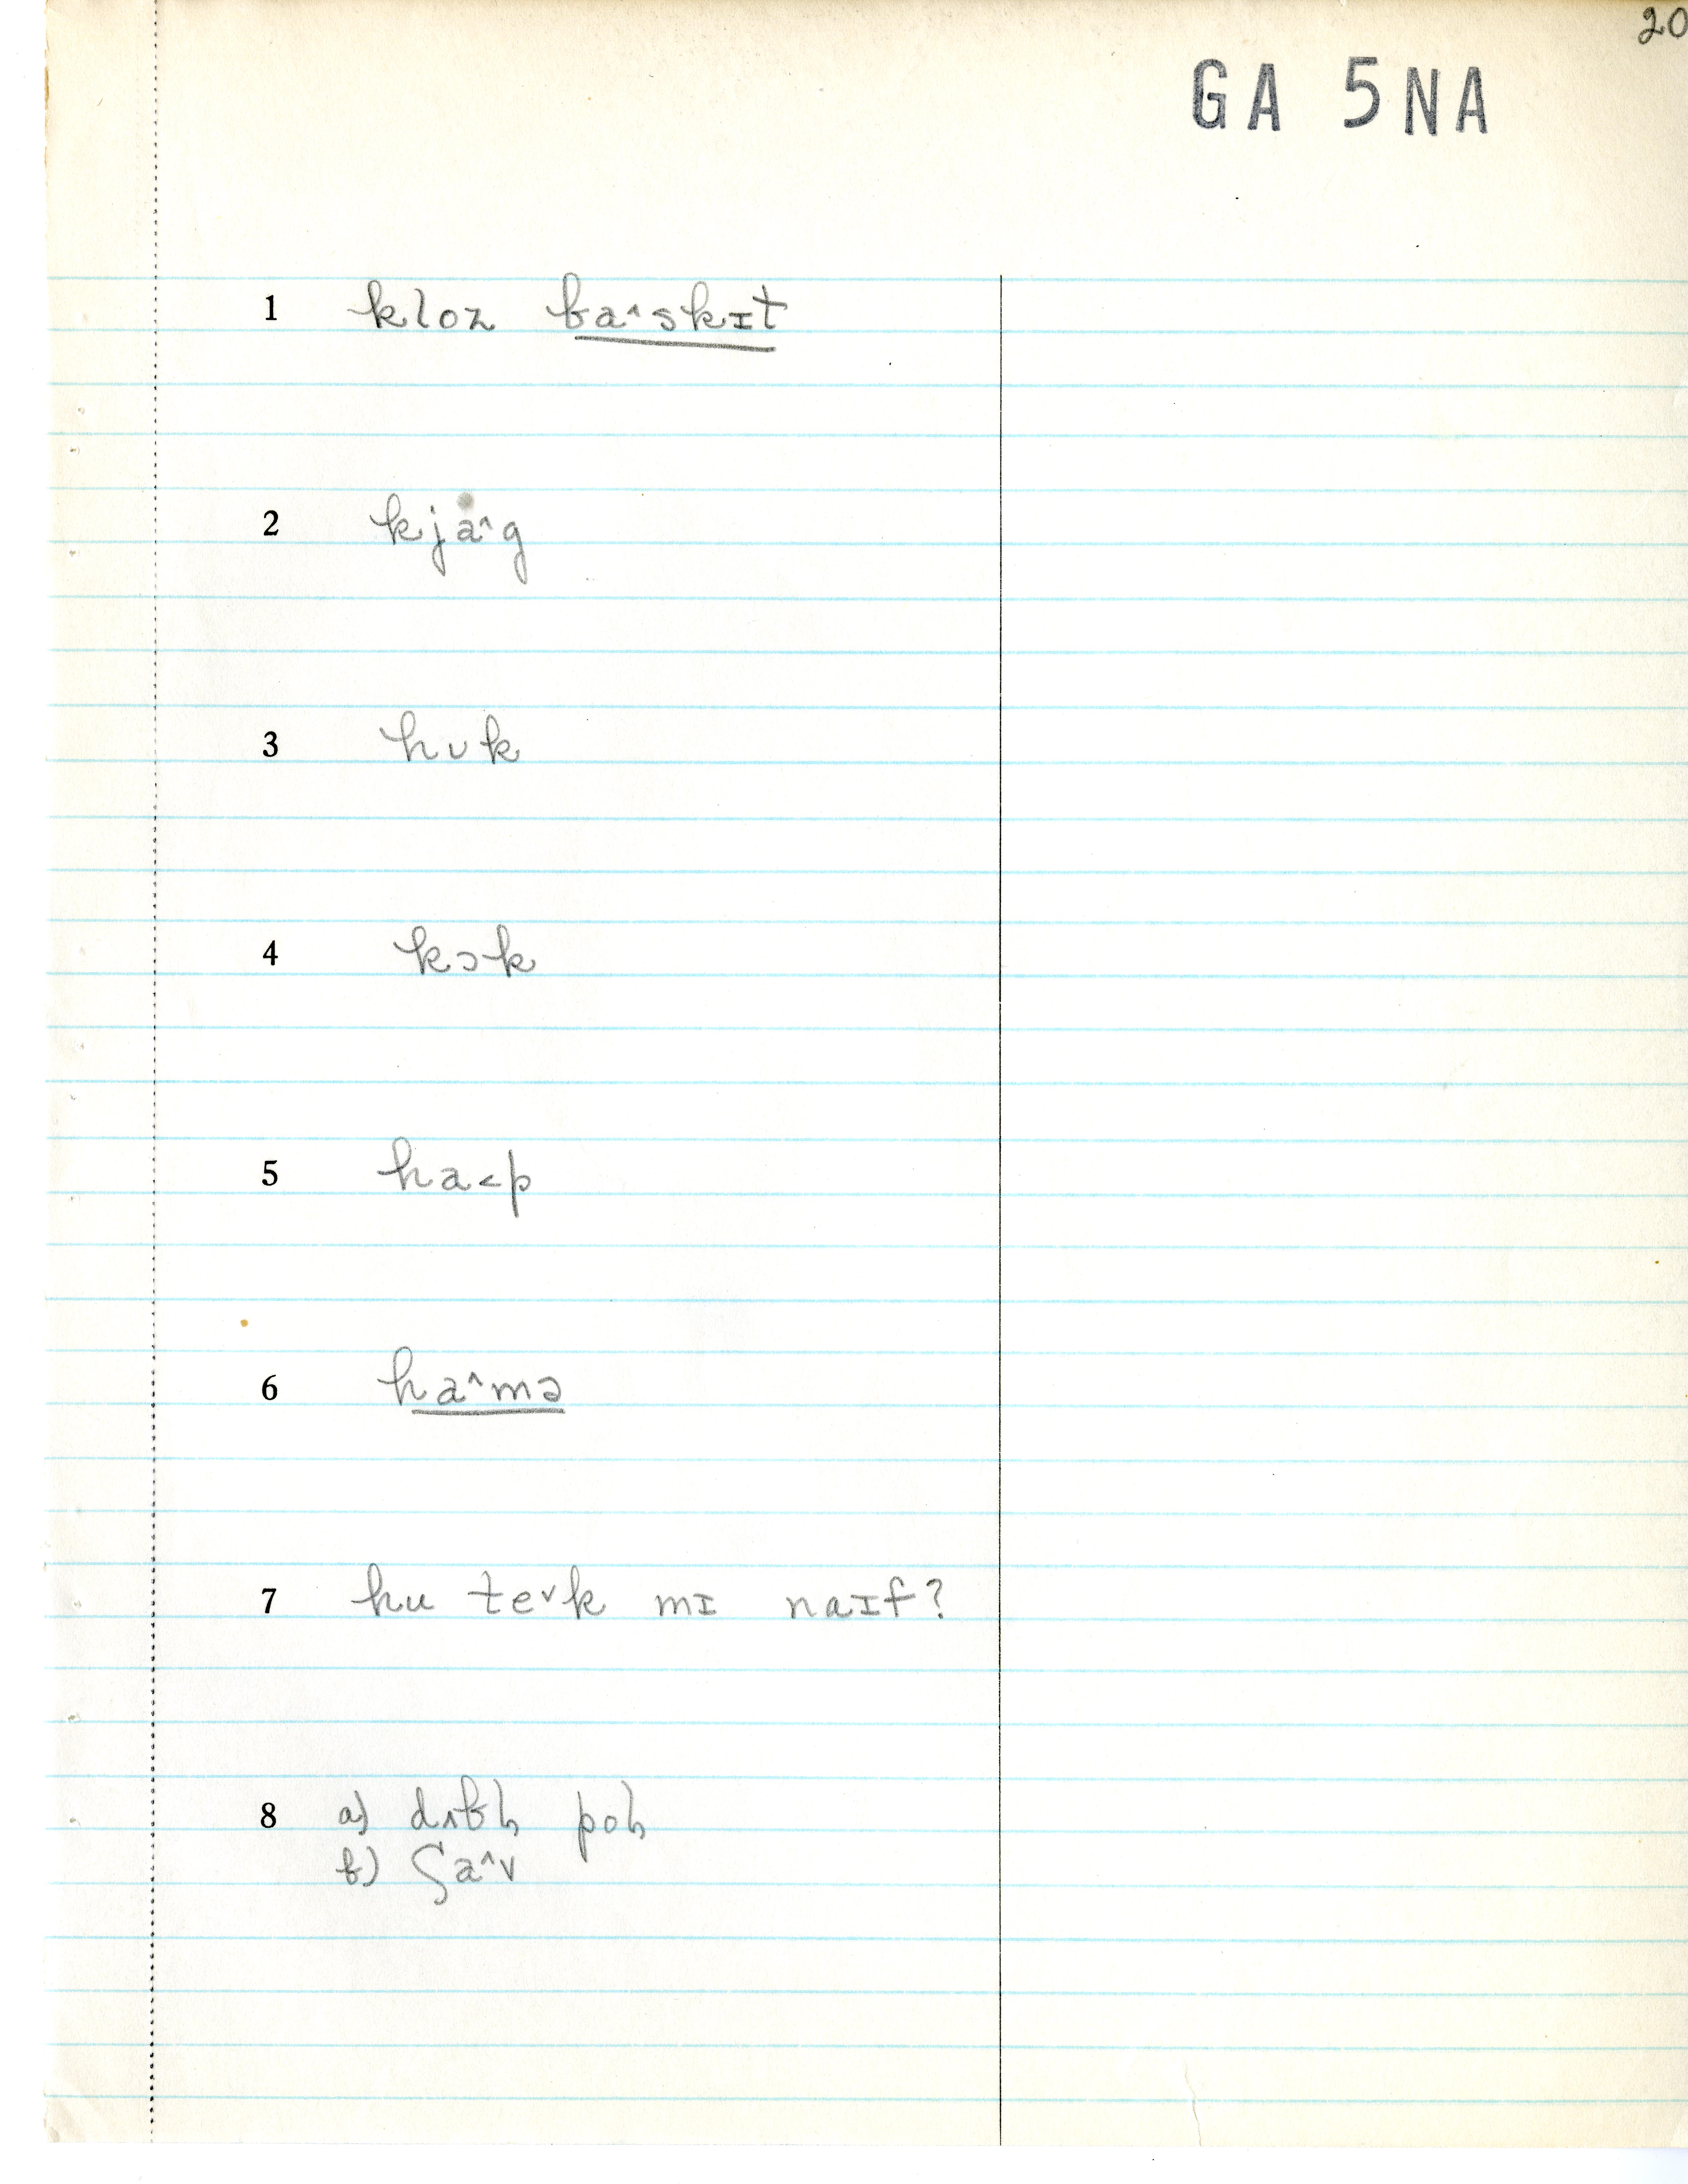 20
GA 5NA
1 kloz ba^skɪt
2 kja^g
3 hʊk
4 kɔk
5 ha<p
6 ha^mə
7 hu teᵛk mɪ naɪf?
8 a) dʌbl̩ pol̩
b) ʃa^v